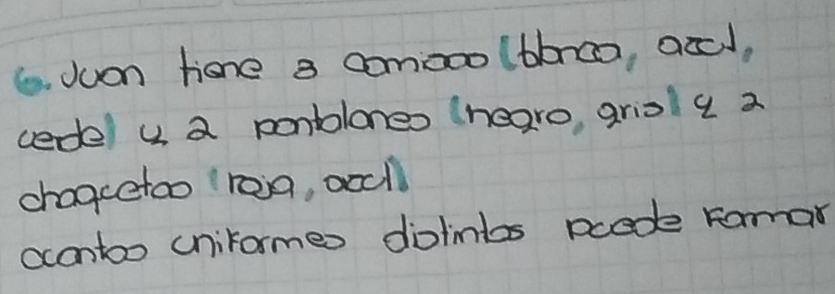 6. Juan tiene 3 camisas (blanca, azul,
verde) y 2 pantalones (negro, gris) y 2
chaquetas (roja, azul)
cuantos uniformes distintos puede formar